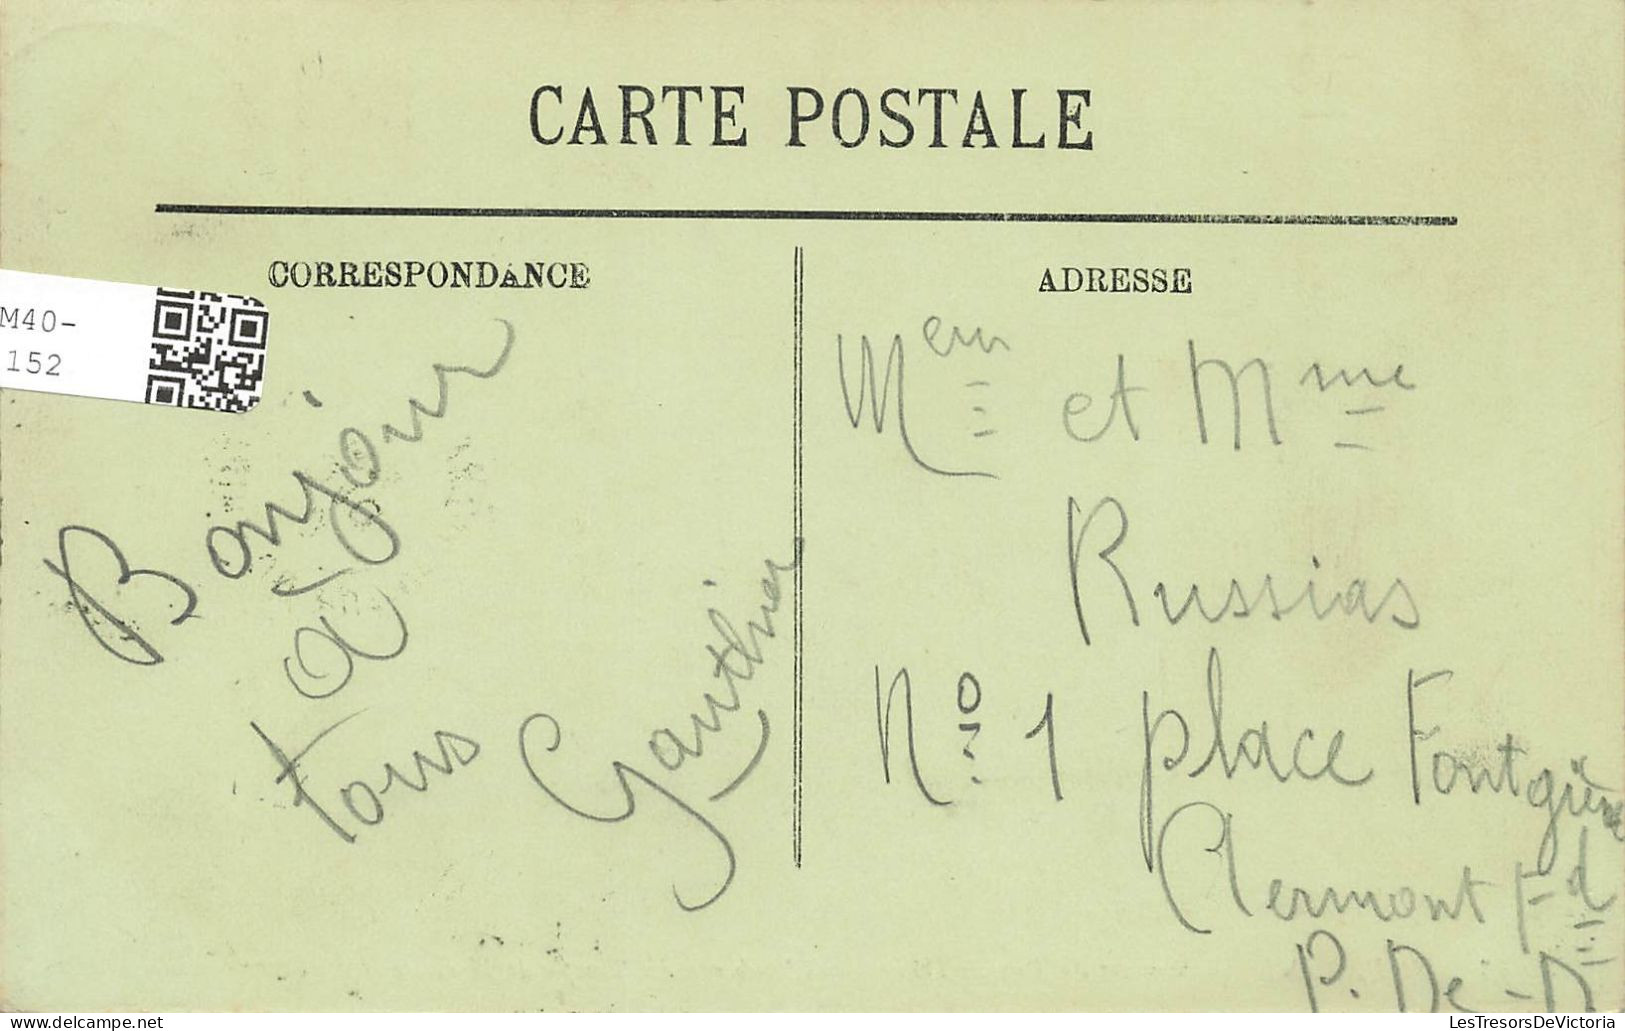 CARTE POSTALE
CORRESPONDANCE
ADRESSE
M40-
152
Bonjour
à
tous
Gauthier
Meur et Mme
Russias
No 1 place Fontgiève
Clermont Fd
P. De-D
LesTresorsDeVictoria